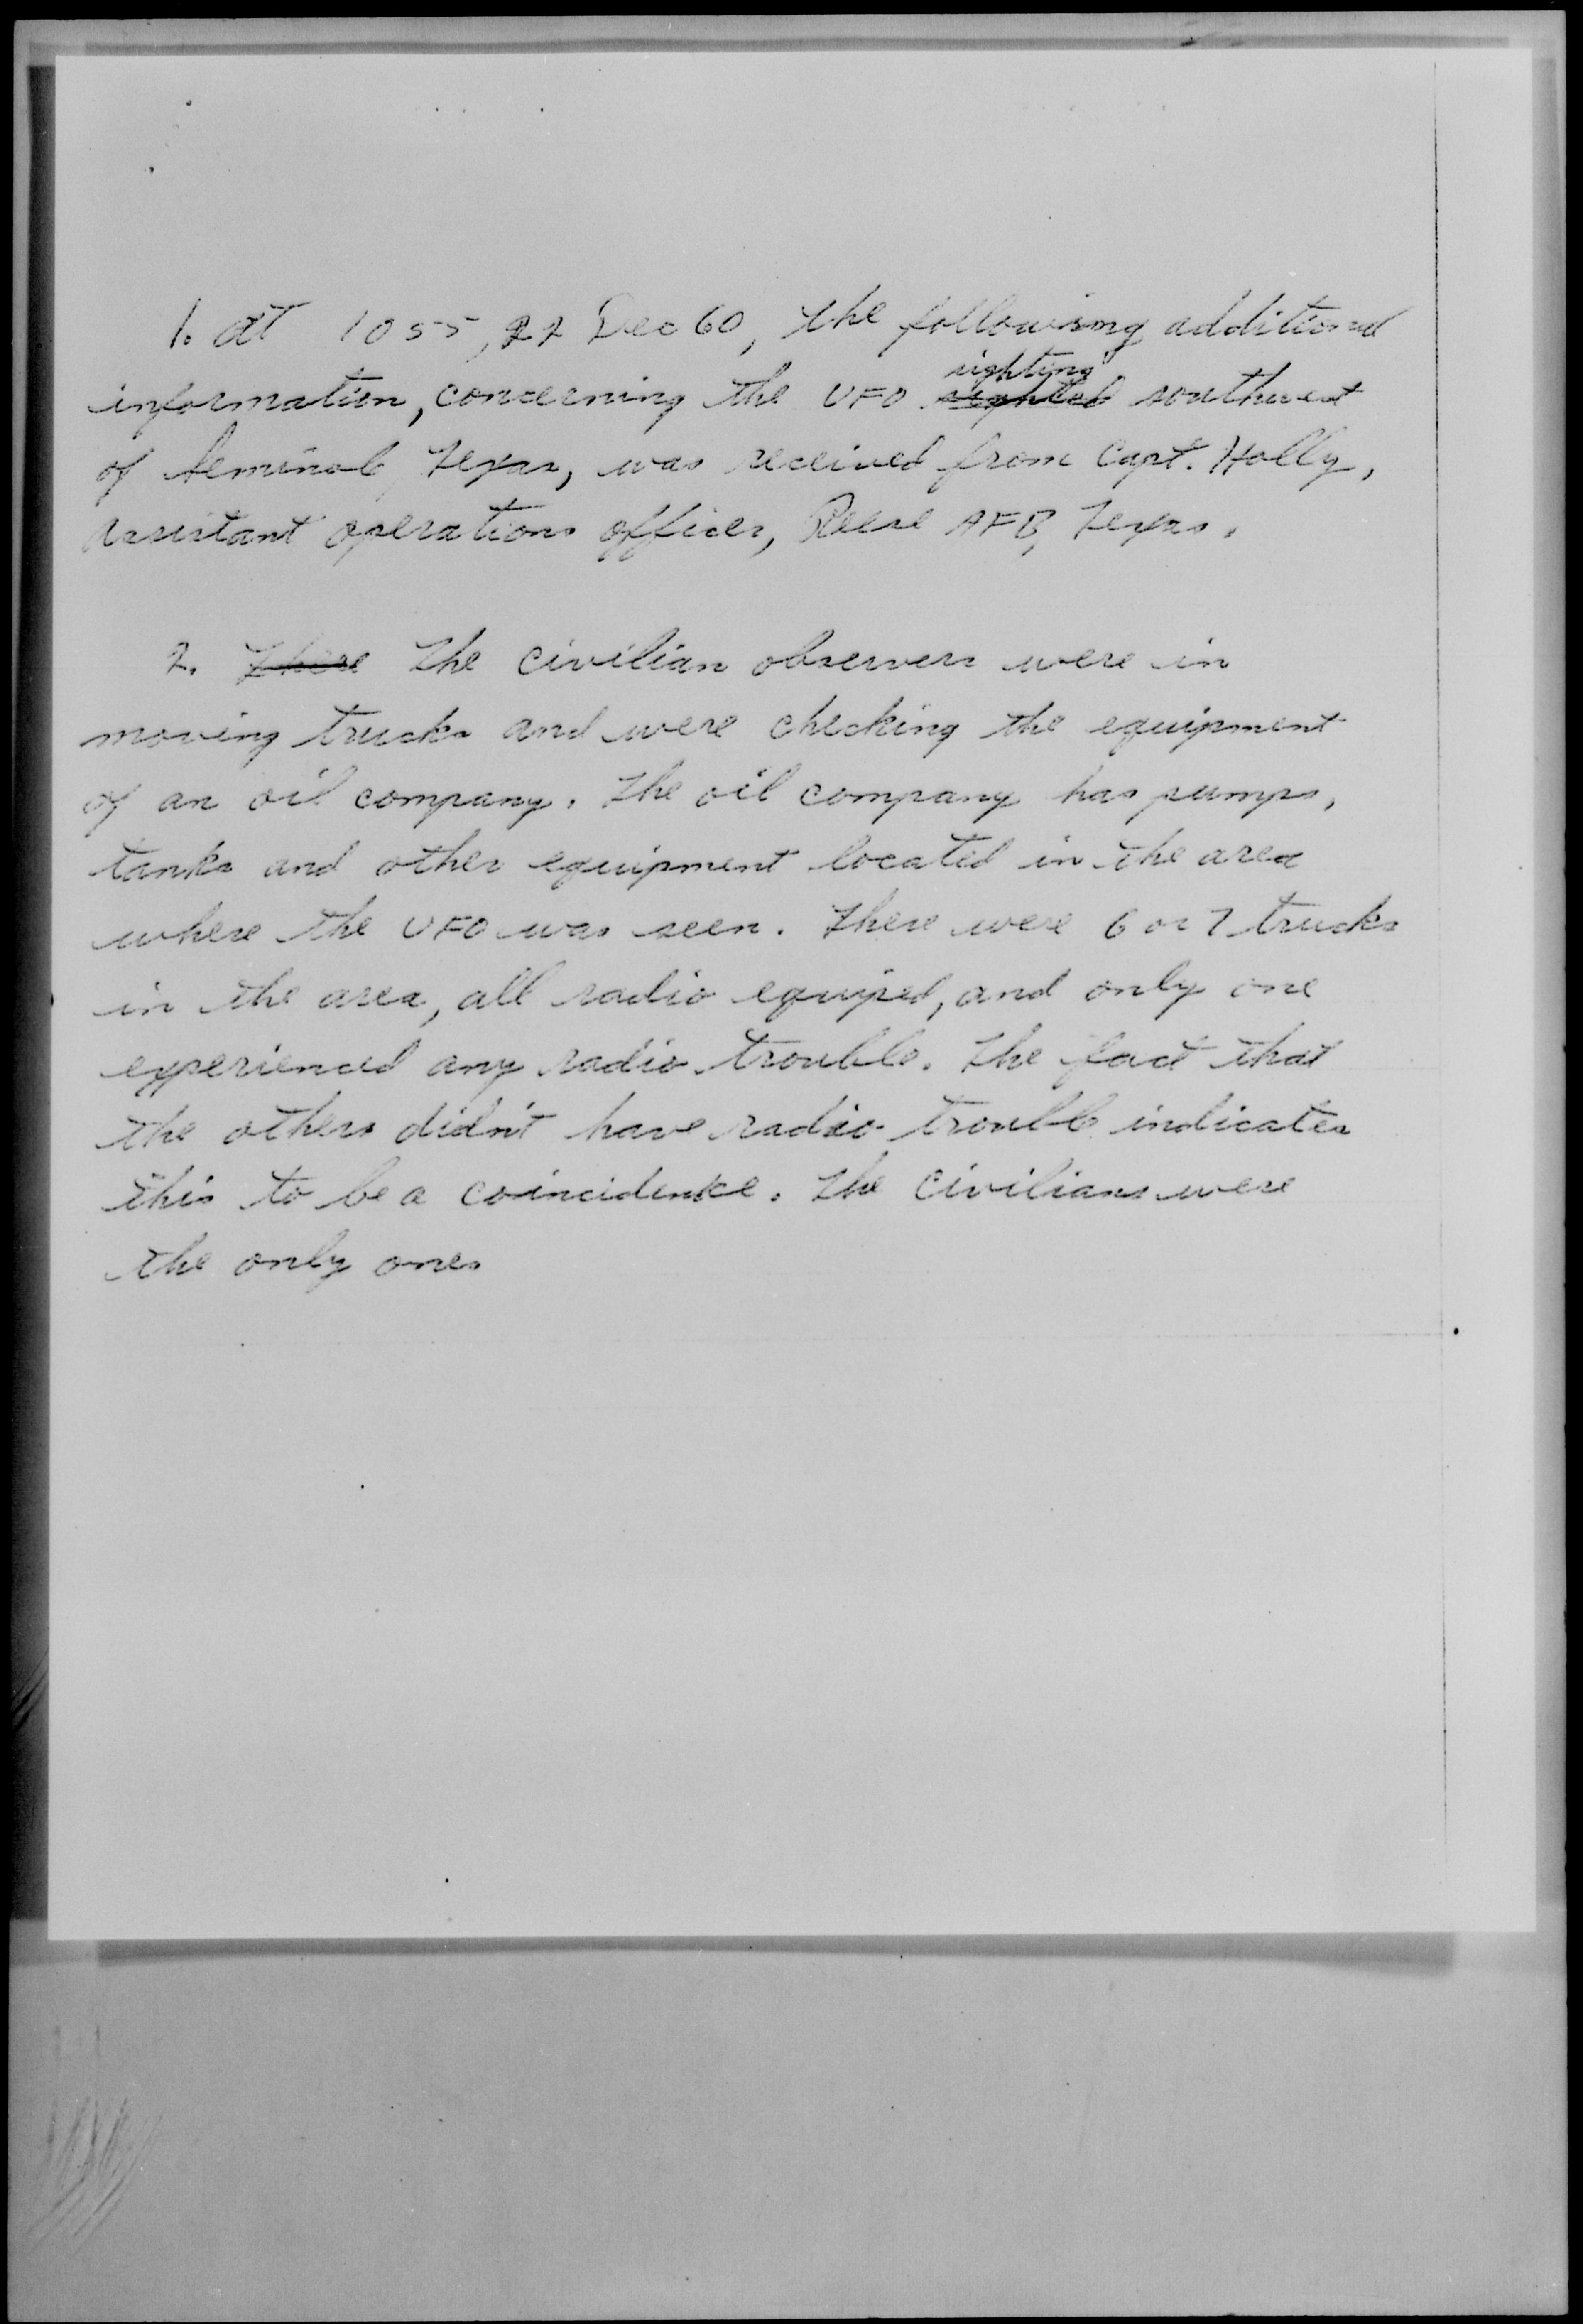 1. At 1055, 22 Dec 60, the following additional
sighting
information, concerning the UFO sighted southwest
of Seminole, Texas, was received from Capt. Holly,
assistant operations officer, Reese AFB, Texas.
2. There The civilian observers were in
moving trucks and were checking the equipment
of an oil company. The oil company has pumps,
tanks and other equipment located in the area
where the UFO was seen. There were 6 or 7 trucks
in the area, all radio equiped, and only one
experienced any radio trouble. The fact that
the others didn't have radio trouble indicates
this to be a coincidence. The civilians were
the only ones